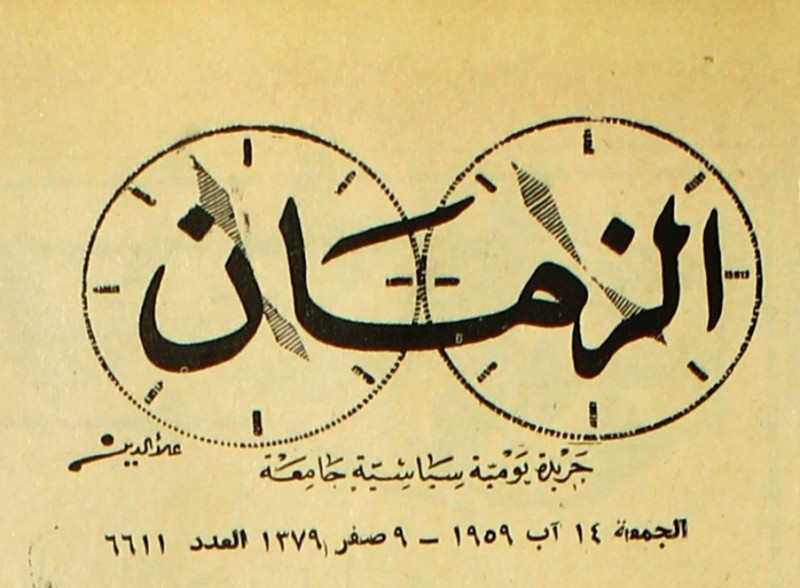 الزمان
علاء الدين
جَريدة يَوْميّة سِيَاسْيّة جَامِعَة
الجمعة ١٤ آب ١٩٥٩ – ٩ صفر ١٣٧٩ العدد ٦٦١١